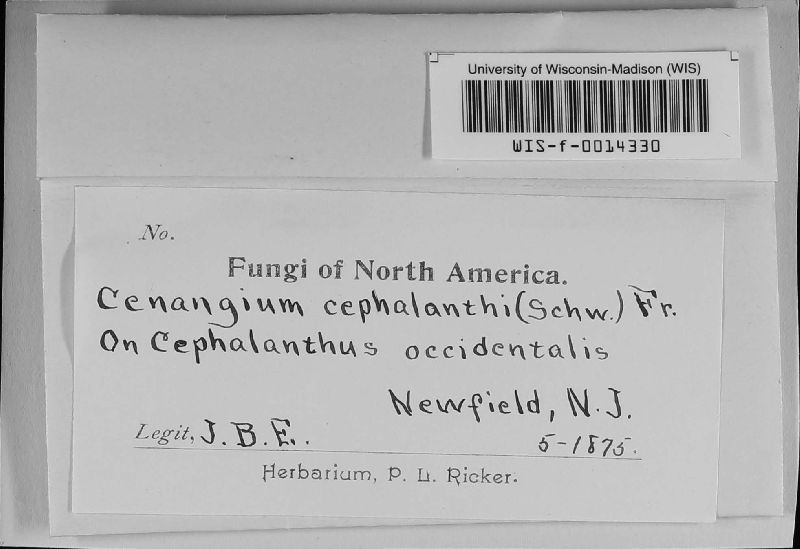 University of Wisconsin-Madison (WIS)
WIS-f-0014330
No.
Fungi of North America.
Cenangium cephalanthi (Schw.) Fr.
On Cephalanthus occidentalis
Newfield, N.J.
Legit, J.B.E.. 5-1875.
Herbarium, P. L. Ricker.